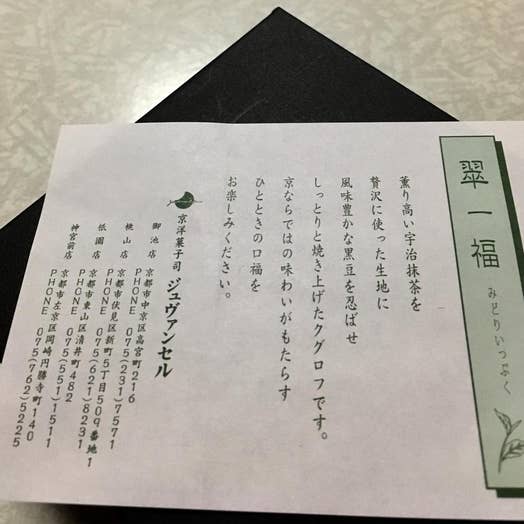 翠一福
みどりいっぷく
薫り高い宇治抹茶を
贅沢に使った生地に
風味豊かな黒豆を忍ばせ
しっとりと焼き上げたクグロフです。
京ならではの味わいがもたらす
ひとときの口福を
お楽しみください。
京洋菓子司 ジュヴァンセル
御池店 京都市中京区高宮町216
PHONE 075(231)7571
桃山店 京都市伏見区新町5丁目509番地1
PHONE 075(621)8231
祇園店 京都市東山区清井町482
PHONE 075(551)1511
神宮前店 京都市左京区岡崎円勝寺町140
PHONE 075(762)5225